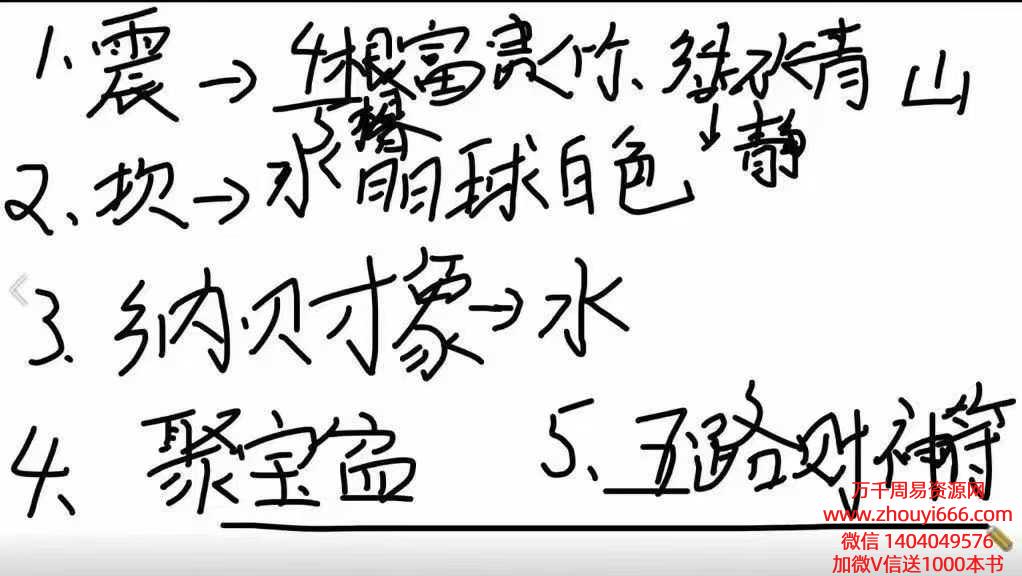 1、震→4根富贵竹、绿水青山
5楼 ↓静
2、坎→水晶球白色
3、纳财象→水
4、聚宝盆 5、五路财神符
万千周易资源网
www.zhouyi666.com
微信 1404049576
加微V信送1000本书